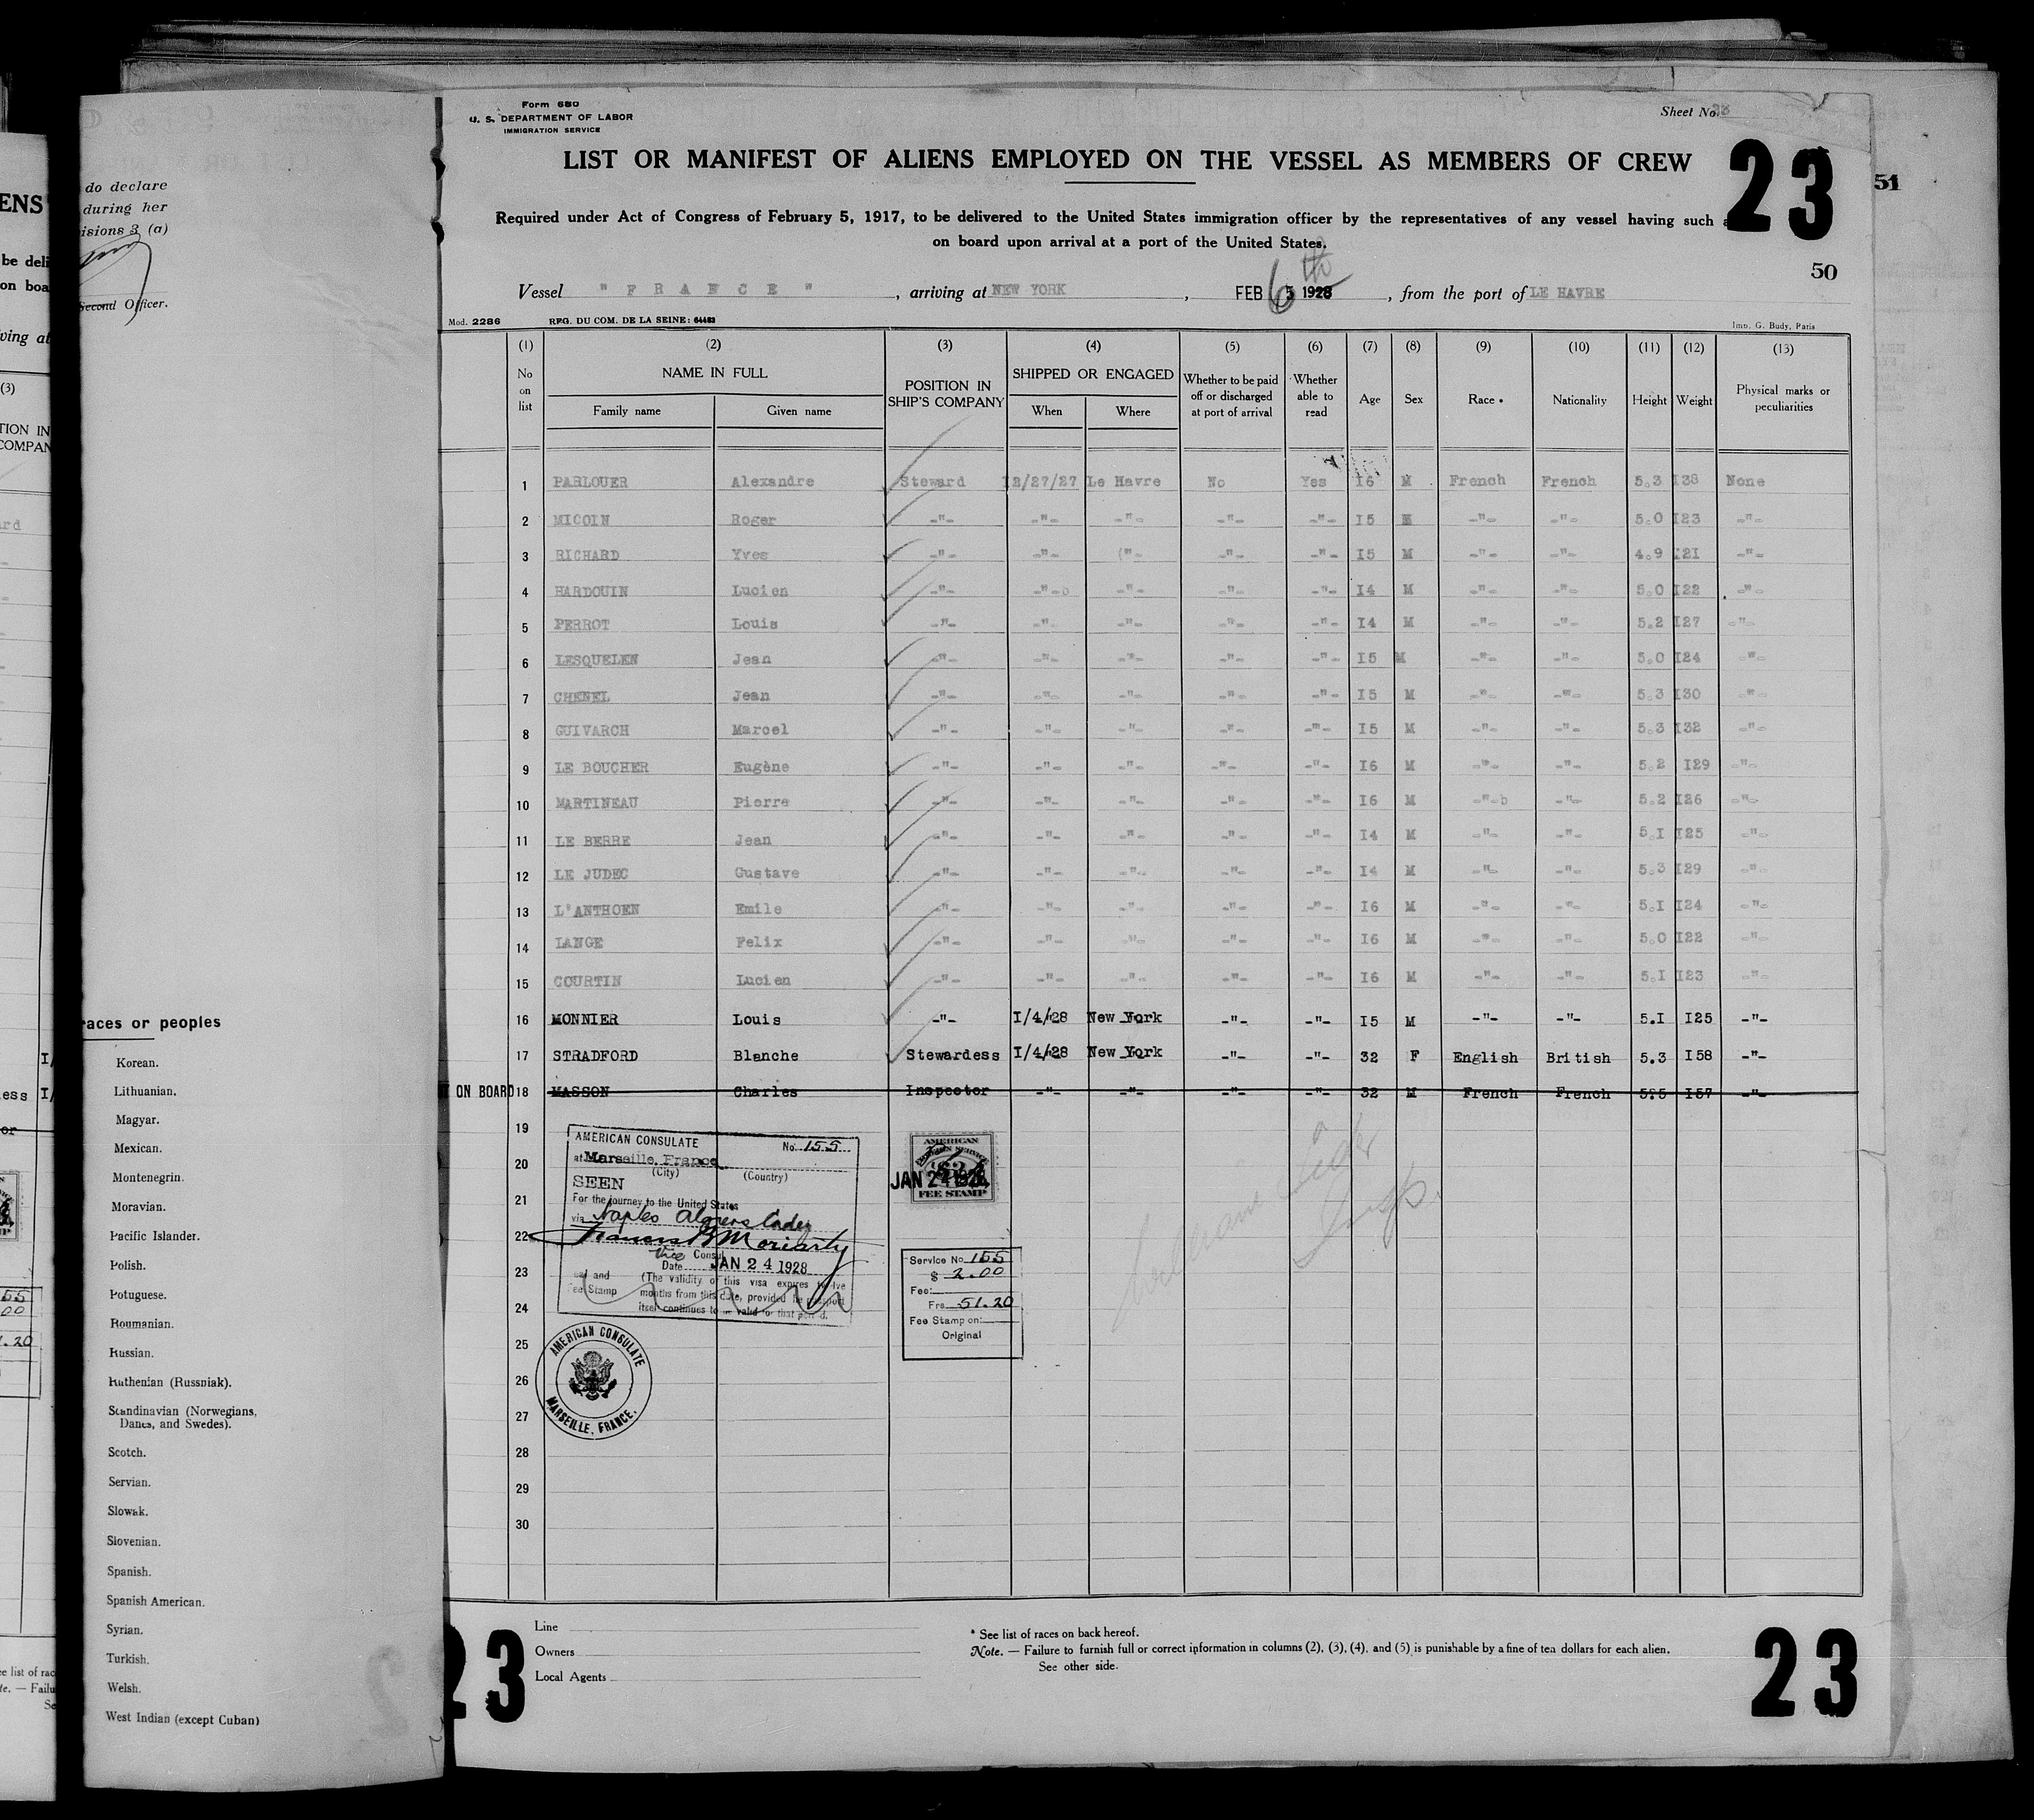 Form 680
U. S. DEPARTMENT OF LABOR
IMMIGRATION SERVICE
Sheet No. 23
LIST OR MANIFEST OF ALIENS EMPLOYED ON THE VESSEL AS MEMBERS OF CREW
23
51
Required under Act of Congress of February 5, 1917, to be delivered to the United States immigration officer by the representatives of any vessel having such a
on board upon arrival at a port of the United States.
50
Vessel " F R A N C E " , arriving at NEW YORK , FEB 6th 1928 , from the port of LE HAVRE
Mod. 2286 REG. DU COM. DE LA SEINE: 64483 Imp. G. Budy, Paris
(1) (2) (3) (4) (5) (6) (7) (8) (9) (10) (11) (12) (13)
No on list NAME IN FULL Family name Given name POSITION IN SHIP'S COMPANY SHIPPED OR ENGAGED When Where Whether to be paid off or discharged at port of arrival Whether able to read Age Sex Race * Nationality Height Weight Physical marks or peculiarities
1 PARLOUER Alexandre Steward 12/27/27 Le Havre No Yes 16 M French French 5.3 138 None
2 MICOIN Roger -"- -"- -"- -"- -"- 15 M -"- -"- 5.0 123 -"-
3 RICHARD Yves -"- -"- ("- -"- -"- 15 M -"- -"- 4.9 121 -"-
4 HARDOUIN Lucien -"- -"-o -"- -"- -"- 14 M -"- -"- 5.0 122 -"-
5 PERROT Louis -"- -"- -"- -"- -"- 14 M -"- -"- 5.2 127 -"-
6 LESQUELEN Jean -"- -"- -"- -"- -"- 15 M -"- -"- 5.0 124 -"-
7 CHENEL Jean -"- -"- -"- -"- -"- 15 M -"- -"- 5.3 130 -"-
8 GUIVARCH Marcel -"- -"- -"- -"- -"- 15 M -"- -"- 5.3 132 -"-
9 LE BOUCHER Eugène -"- -"- -"- -"- -"- 16 M -"- -"- 5.2 129 -"-
10 MARTINEAU Pierre -"- -"- -"- -"- -"- 16 M -"-b -"- 5.2 126 -"-
11 LE BERRE Jean -"- -"- -"- -"- -"- 14 M -"- -"- 5.1 125 -"-
12 LE JUDEC Gustave -"- -"- -"- -"- -"- 14 M -"- -"- 5.3 129 -"-
13 L'ANTHOEN Emile -"- -"- -"- -"- -"- 16 M -"- -"- 5.1 124 -"-
14 LANGE Felix -"- -"- -"- -"- -"- 16 M -"- -"- 5.0 122 -"-
15 COURTIN Lucien -"- -"- -"- -"- -"- 16 M -"- -"- 5.1 123 -"-
16 MONNIER Louis -"- 1/4/28 New York -"- -"- 15 M -"- -"- 5.1 125 -"-
17 STRADFORD Blanche Stewardess 1/4/28 New York -"- -"- 32 F English British 5.3 158 -"-
ON BOARD 18 MASSON Charles Inspector -"- -"- -"- -"- 32 M French French 5.5 157 -"-
19
20
21
22
23
24
25
26
27
28
29
30
AMERICAN CONSULATE No. 155
at Marseille, France
(City) (Country)
SEEN
For the journey to the United States
via Naples Algiers Cadiz
Francis B Moriarty
Vice Consul
Date JAN 24 1928
Seal and Fee Stamp
(The validity of this visa expires twelve
months from this date, provided the passport
itself continues to be valid for that period.
AMERICAN CONSULATE
MARSEILLE, FRANCE.
AMERICAN
FOREIGN SERVICE
$2
FEE STAMP
JAN 24 1928
Service No. 155
$ 2.00
Fee:
Frs. 51.20
Fee Stamp on:
Original
Line
Owners
Local Agents
* See list of races on back hereof.
Note. — Failure to furnish full or correct information in columns (2), (3), (4), and (5) is punishable by a fine of ten dollars for each alien.
See other side.
23
23
do declare
during her
isions 3 (a)
Second Officer.
races or peoples
Korean.
Lithuanian.
Magyar.
Mexican.
Montenegrin.
Moravian.
Pacific Islander.
Polish.
Potuguese.
Roumanian.
Russian.
Ruthenian (Russniak).
Scandinavian (Norwegians,
Danes, and Swedes).
Scotch.
Servian.
Slowak.
Slovenian.
Spanish.
Spanish American.
Syrian.
Turkish.
Welsh.
West Indian (except Cuban)
ENS
be deli
on boa
ving at
(3)
TION IN
COMPAN